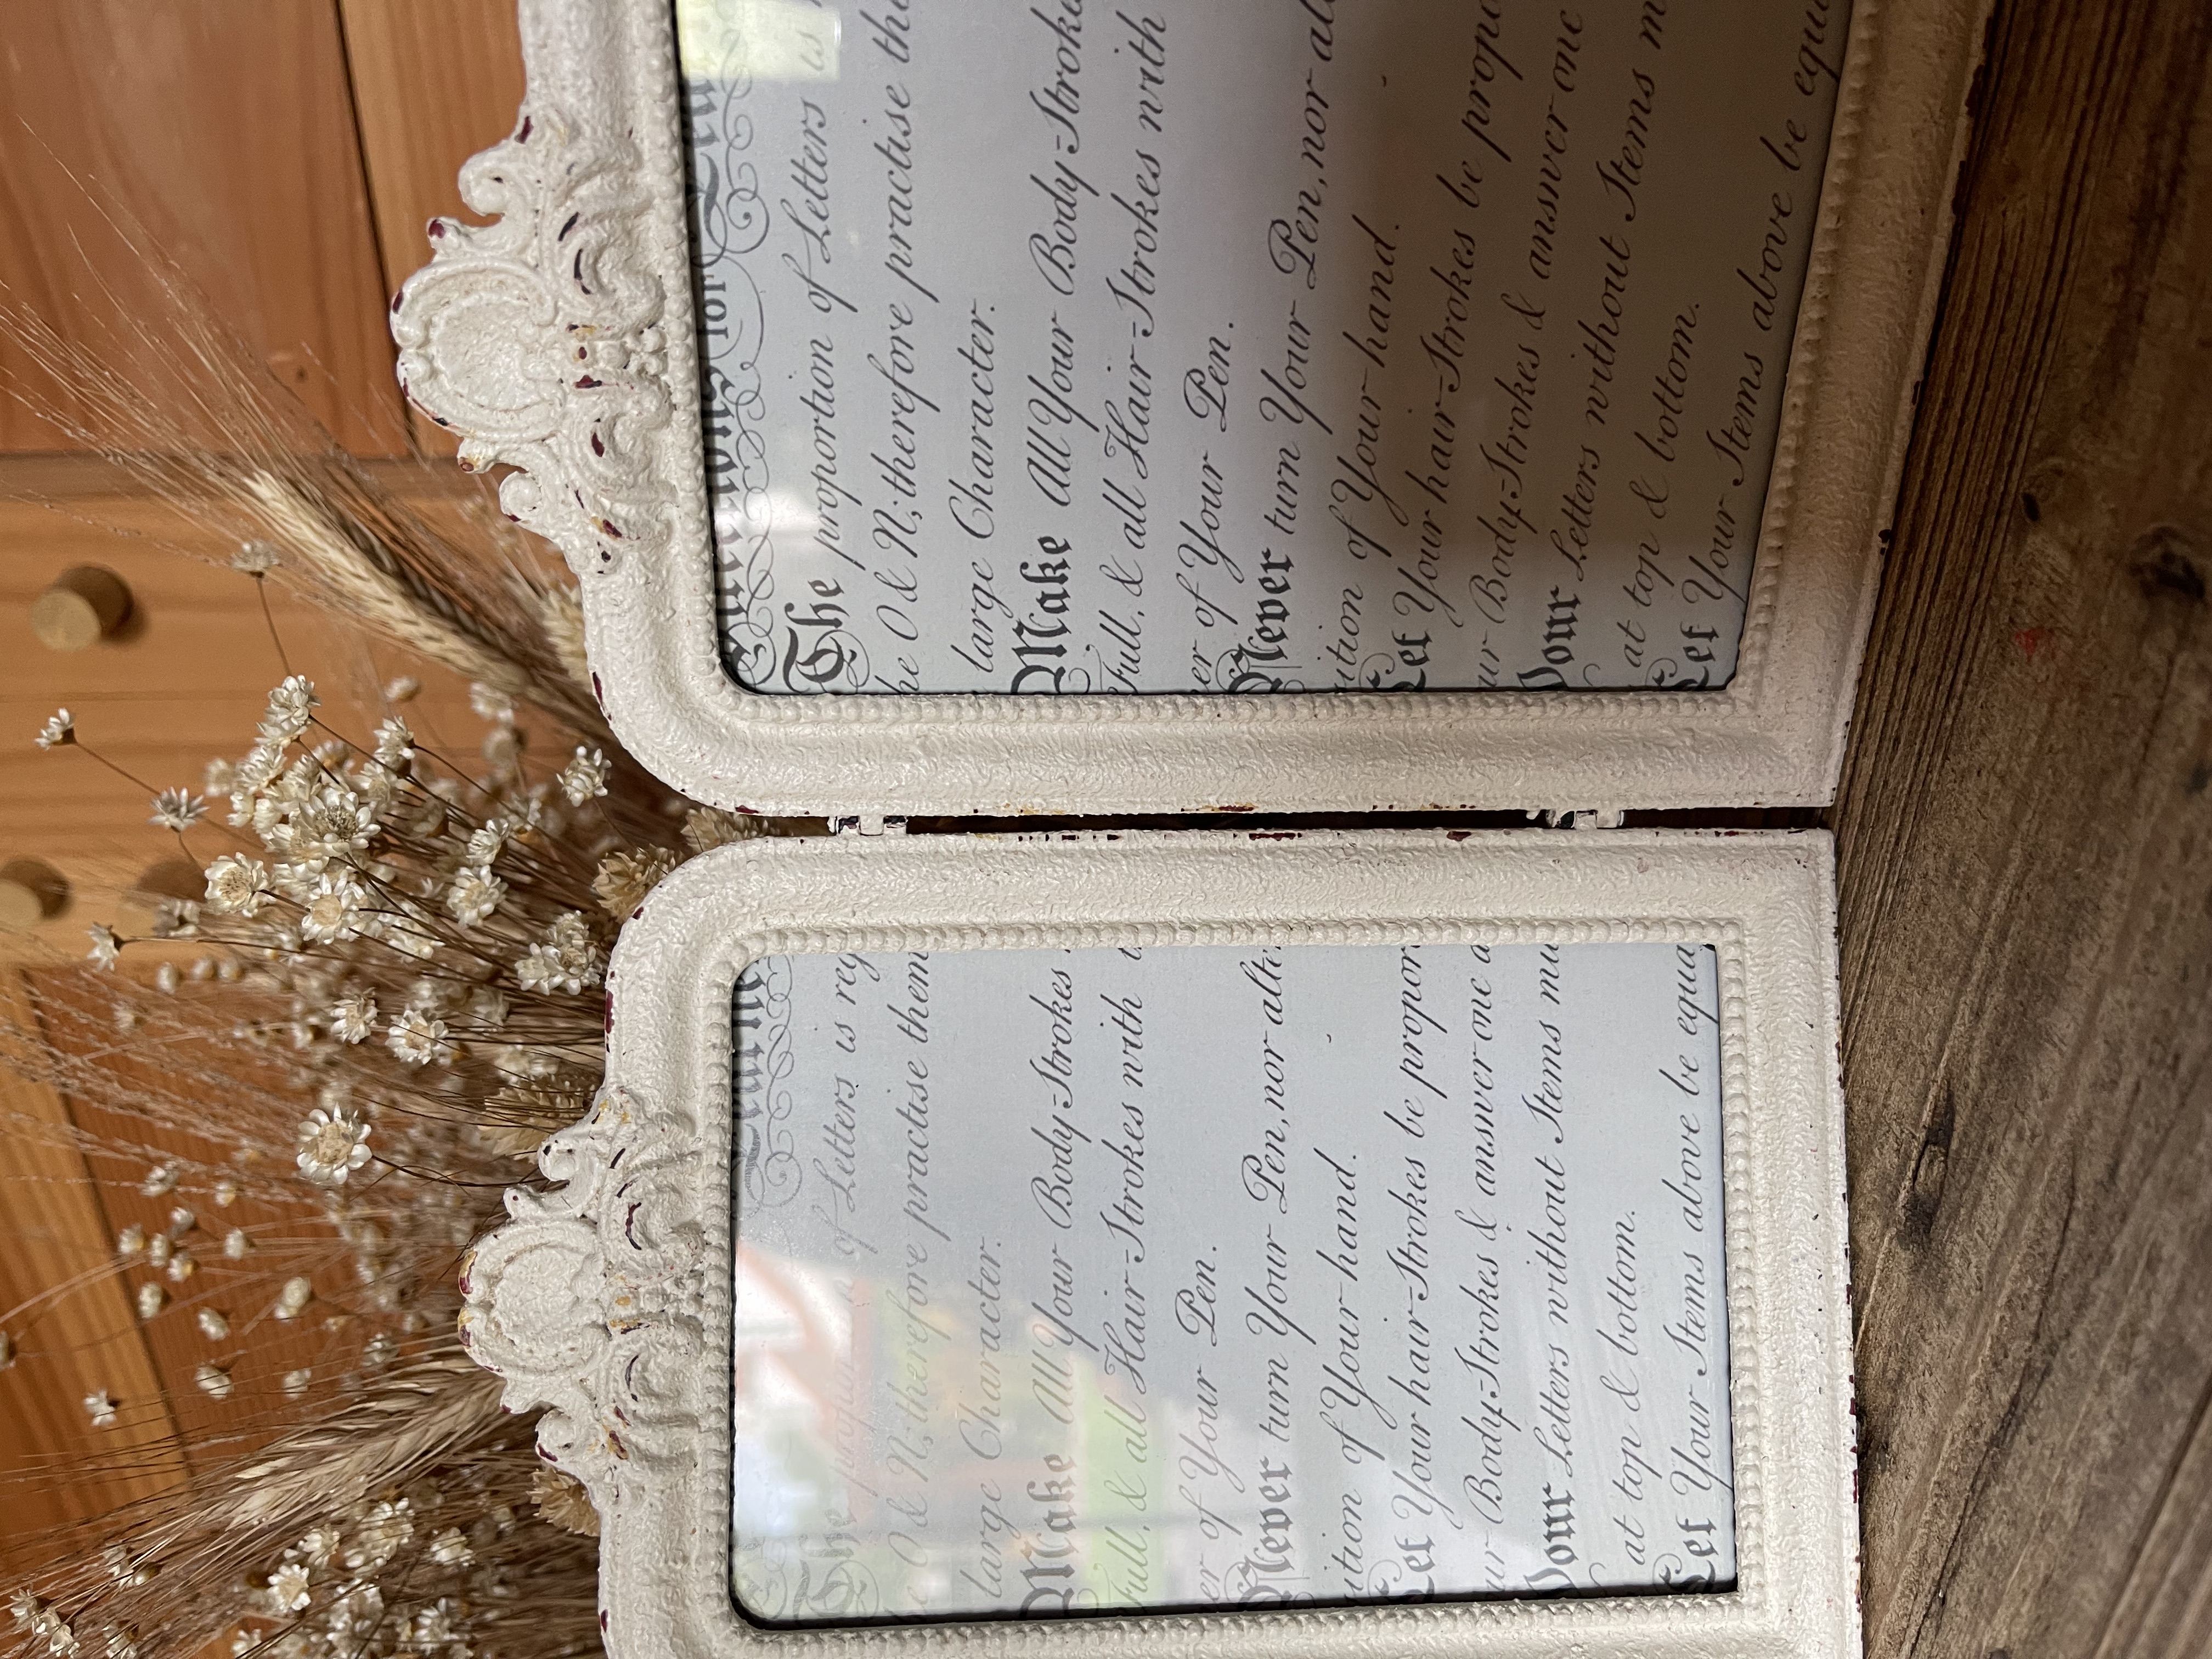 The proportion of Letters is reg
he O & N; therefore practise them
large Character.
Make All Your Body-Strokes
Full, & all Hair-Strokes with
er of Your Pen.
Never turn Your Pen, nor alte
ition of Your hand.
Let Your hair-Strokes be propor
ur Body-Strokes & answer one a
Your Letters without Stems mu
at top & bottom.
Let Your Stems above be equa
for
The proportion of Letters is
he O & N; therefore practise the
large Character.
Make All Your Body-Stroke
Full, & all Hair-Strokes with
er of Your Pen.
Never turn Your Pen, nor alt
ition of Your hand.
Let Your hair-Strokes be propo
ur Body-Strokes & answer one
Your Letters without Stems m
at top & bottom.
Let Your Stems above be equ